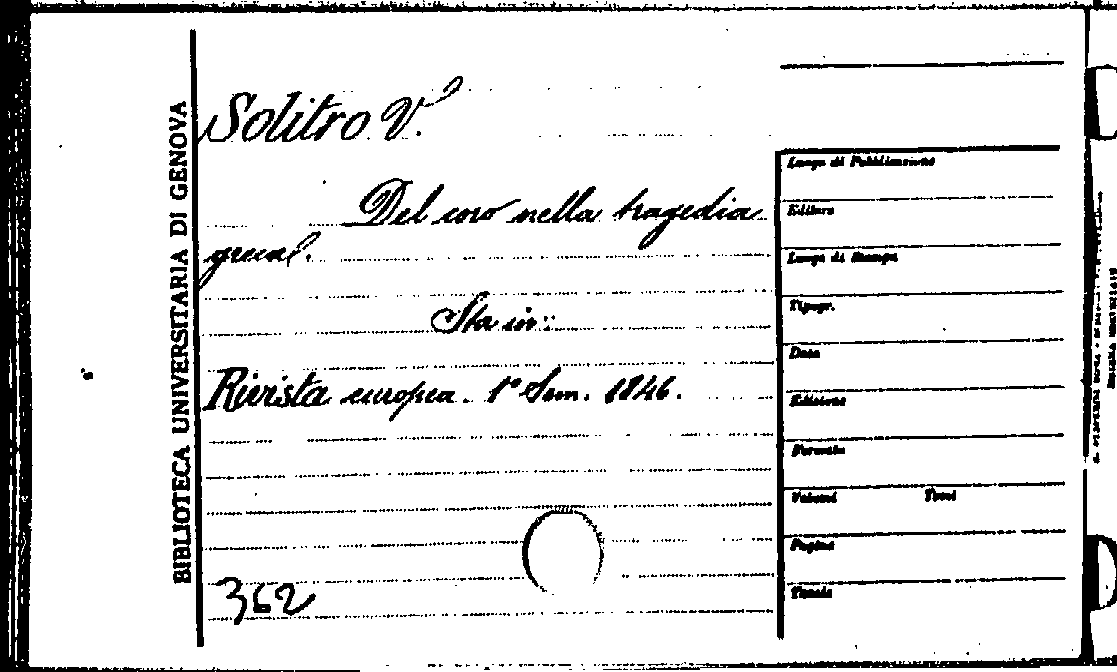 BIBLIOTECA UNIVERSITARIA DI GENOVA
Solitro V.
Del coro nella tragedia
greca.
Sta in:
Rivista europea. 1° Sem. 1846.
362
Luogo di Pubblicazione
Editore
Luogo di Stampa
Tipogr.
Data
Edizione
Formato
Volumi Tomi
Pagine
Tavole